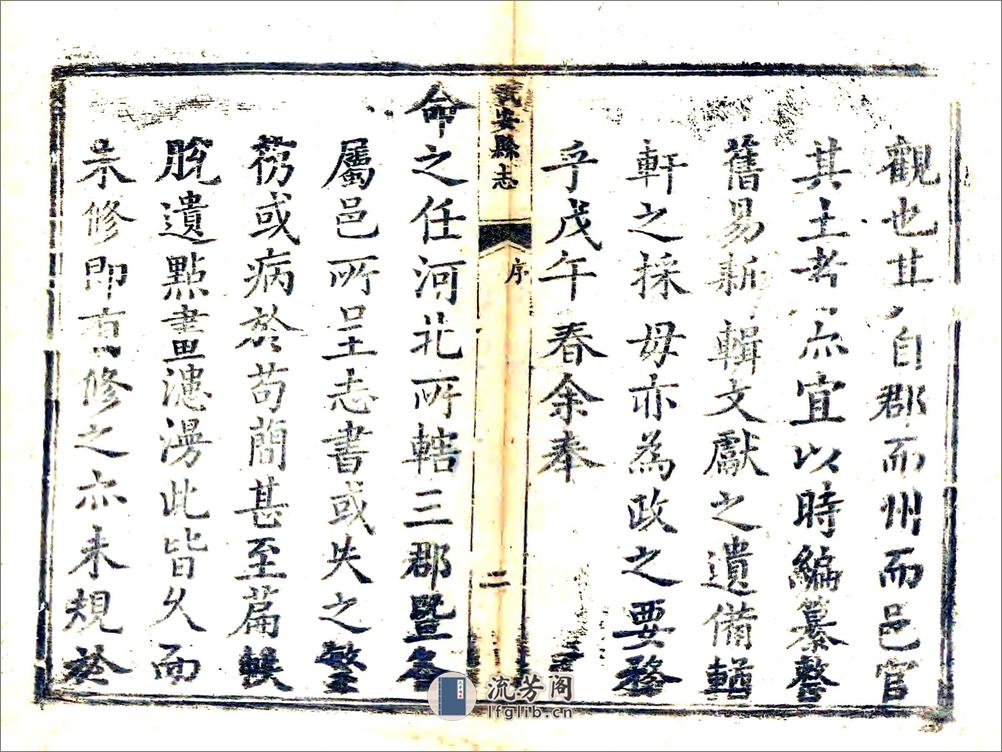 觀也其自郡而州而邑官
其土者亦宜以時編纂整
舊易新輯文獻之遺備輶
軒之採毋亦為政之要務
乎戊午春余奉
武安縣志
序
二
命之任河北所轄三郡暨各
屬邑所呈志書或失之繁
蓩或病於苟簡甚至篇帙
脫遺點畫漶漫此皆久而
未修即有修之亦未規於
流芳閣
lfglib.cn